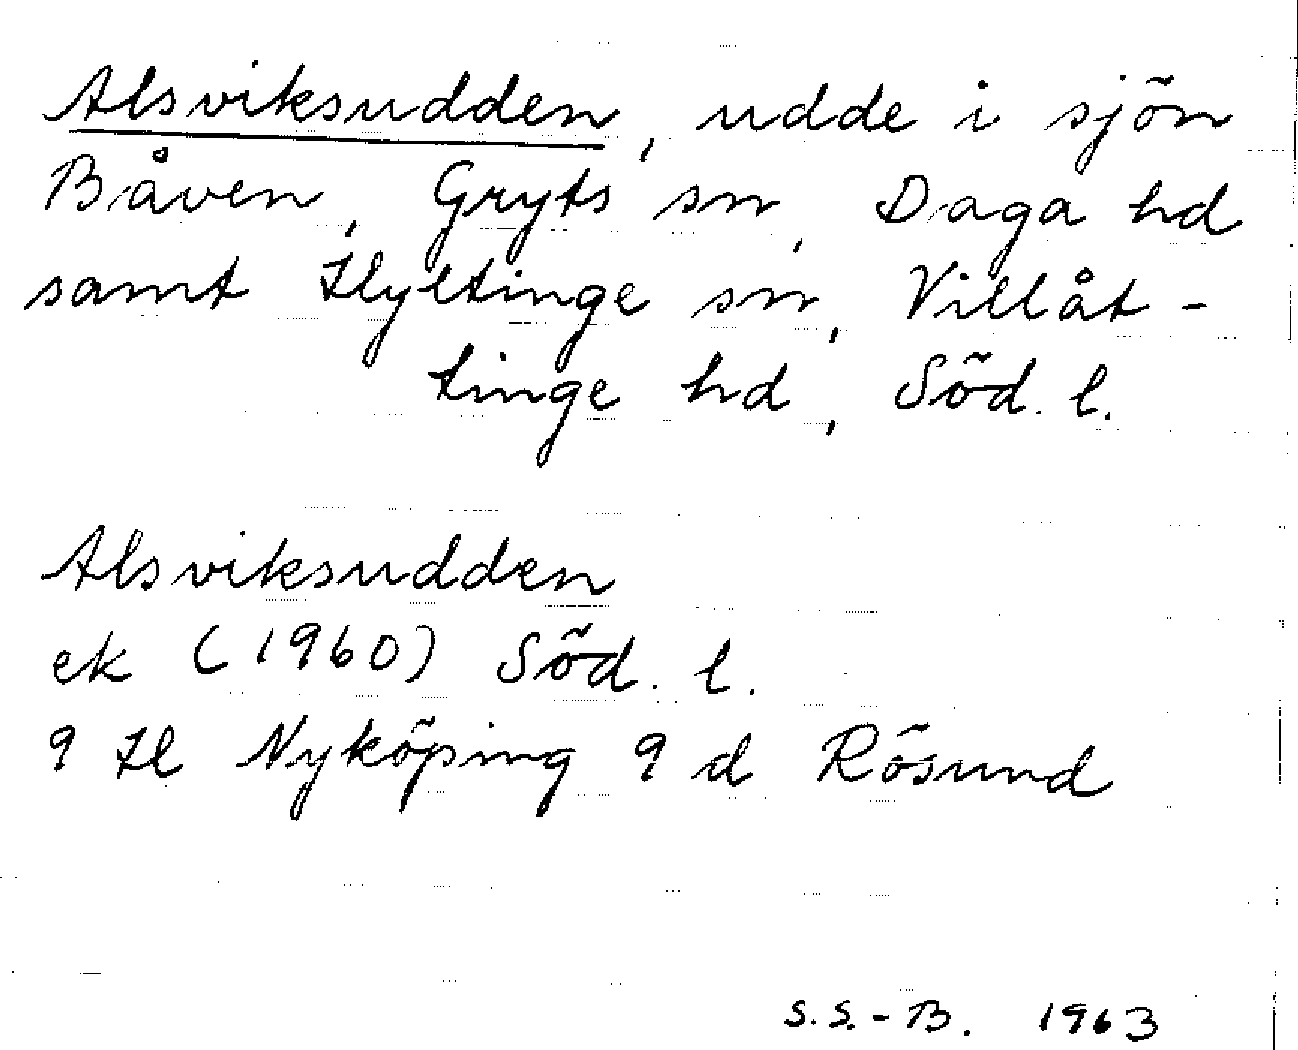 Alsviksudden, udde i sjön
Båven, Gryts sn, Daga hd
samt Hyltinge sn, Villåt-
tinge hd, Söd. l.
Alsviksudden
ek (1960) Söd. l.
9 H Nyköping 9 d Rösund
S.S.-B. 1963